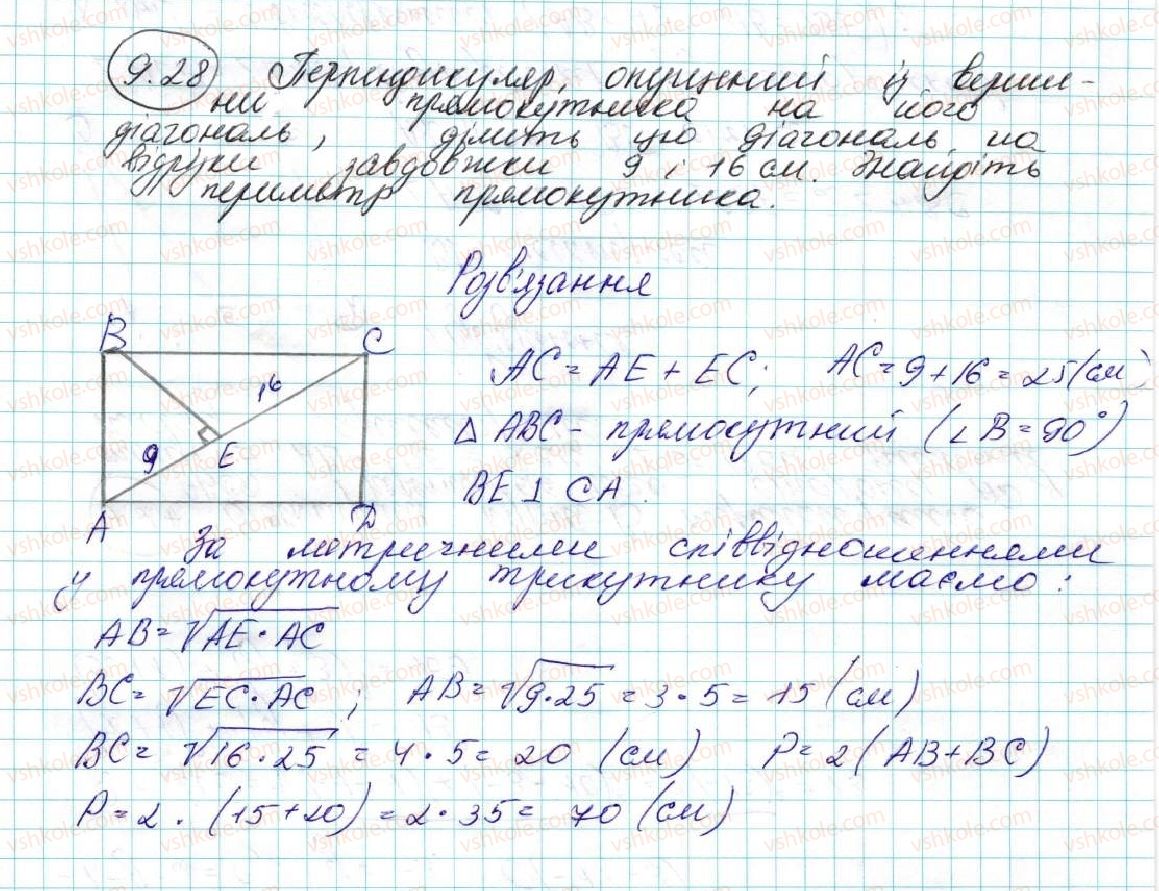 9.28 Перпендикуляр, опущений із верши-
ни прямокутника на його
діагональ, ділить цю діагональ на
відрізки завдовжки 9 і 16 см. Знайдіть
периметр прямокутника.
Розв'язання
B C
16
AC = AE + EC; AC = 9 + 16 = 25 (см)
9 E
△ ABC - прямокутний (∠B = 90°)
BE ⊥ CA.
A D
За метричними співвідношеннями
у прямокутному трикутнику маємо:
AB = √AE · AC
BC = √EC · AC; AB = √9 · 25 = 3 · 5 = 15 (см)
BC = √16 · 25 = 4 · 5 = 20 (см) P = 2 (AB + BC)
P = 2 · (15 + 20) = 2 · 35 = 70 (см)